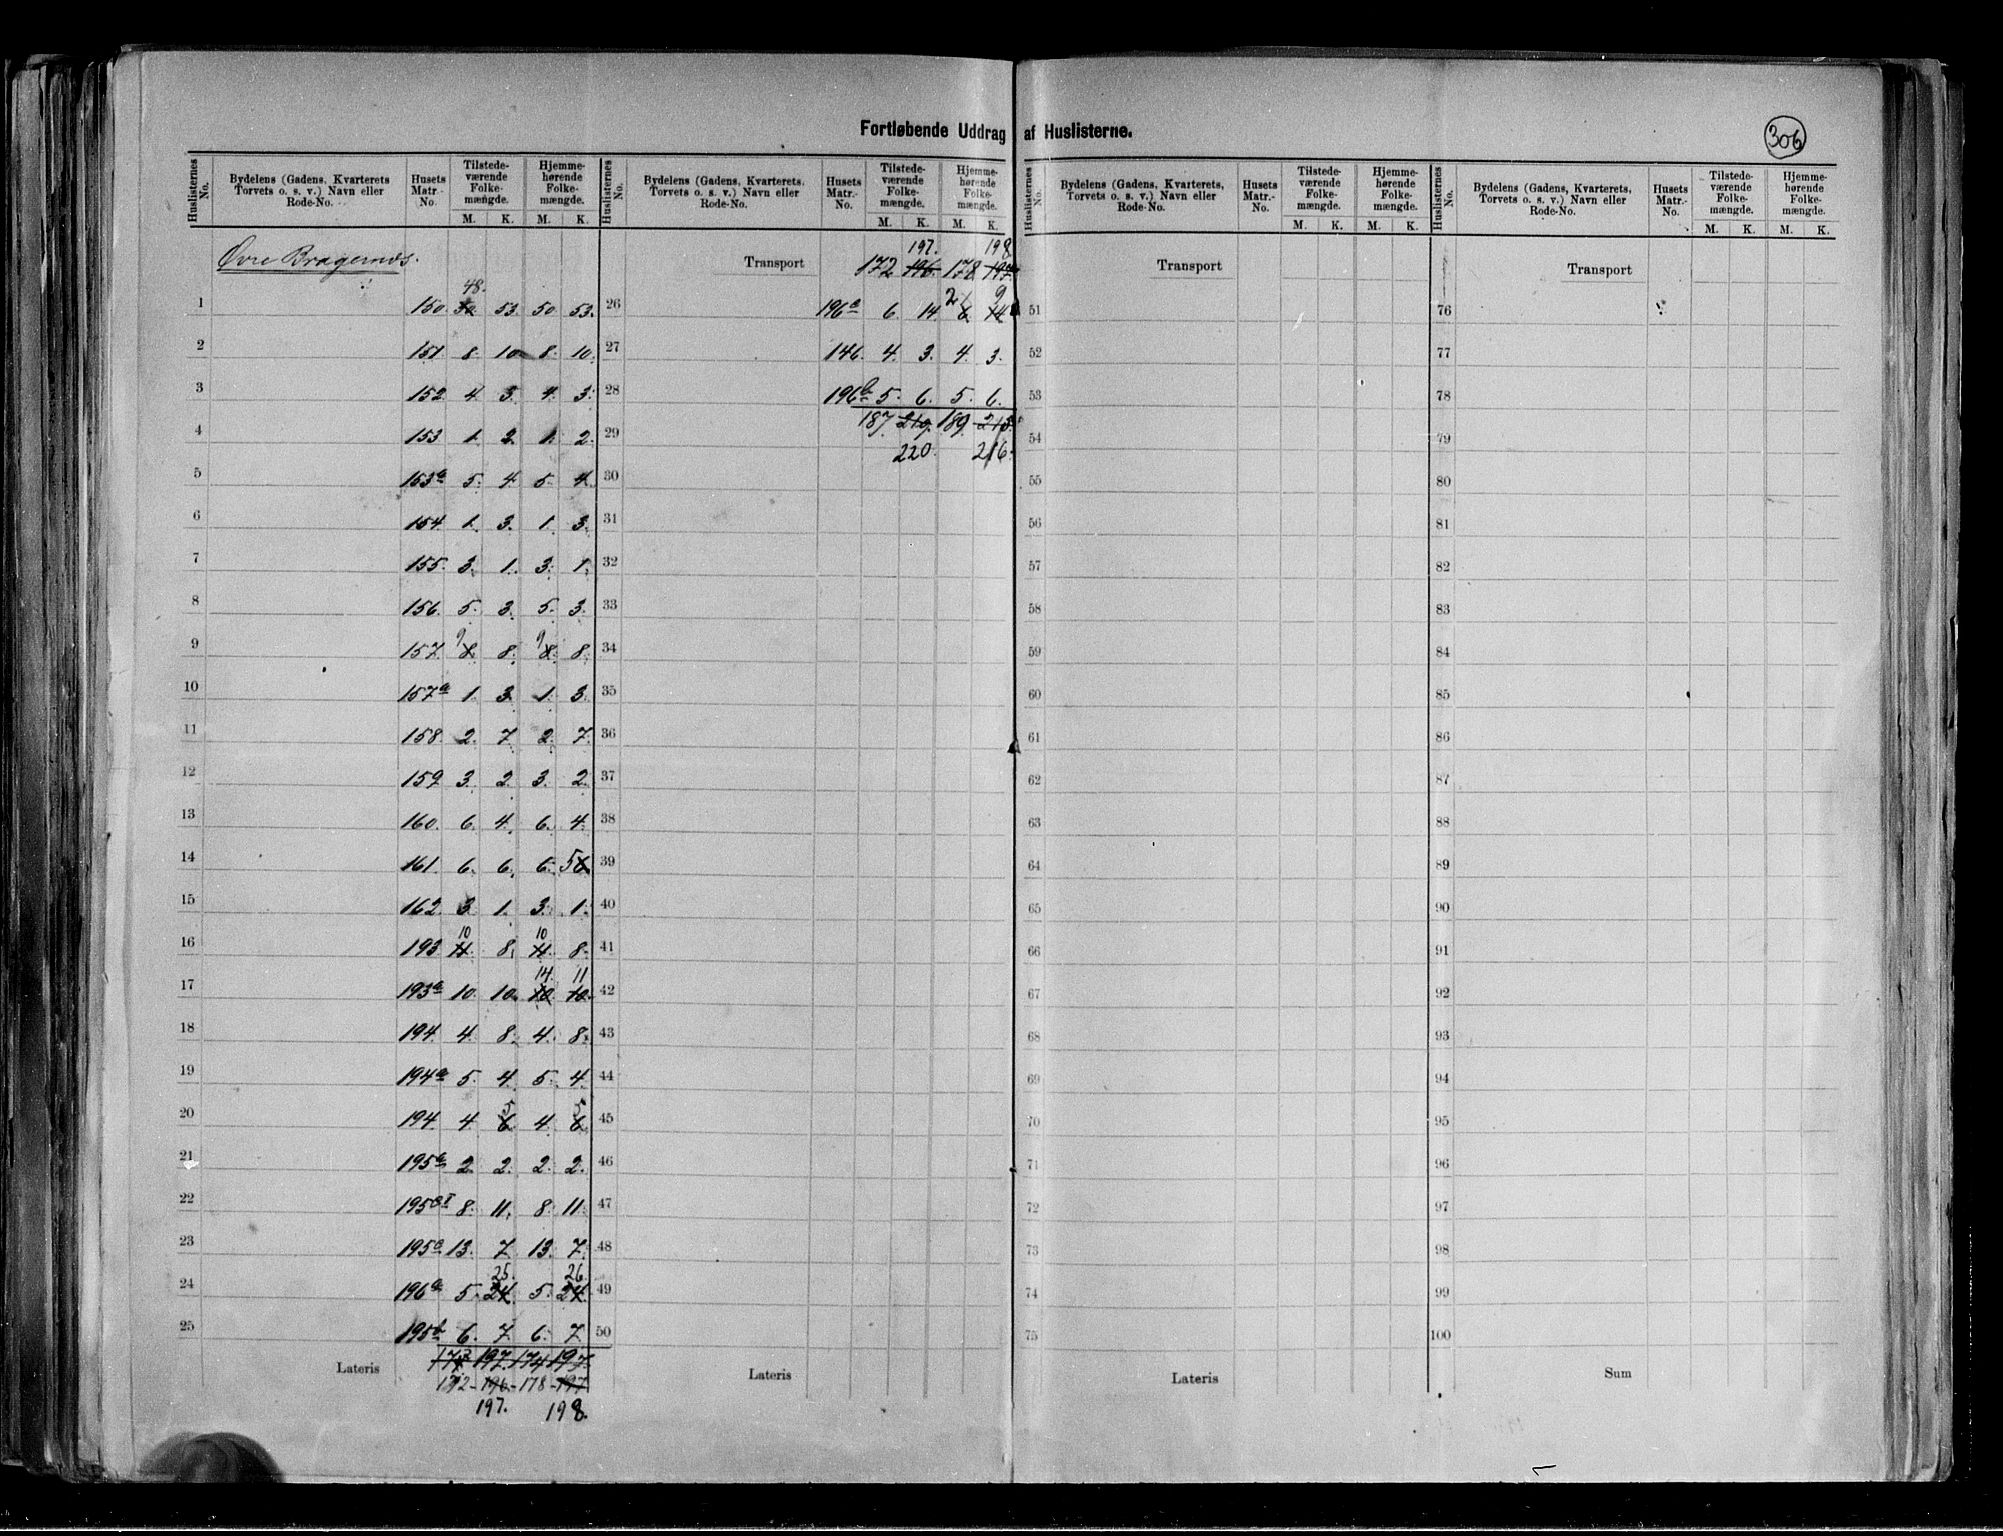 Fortløbende Uddrag af Huslisterne.
306
Huslisternes No. | Bydelens (Gadens, Kvarterets Torvets o. s. v.) Navn eller Rode-No. | Husets Matr.-No. | Tilstede-værende Folke-mængde. M. K. | Hjemme-hørende Folke-mængde. M. K.
Øvre Bragernæs.
1 150. 50. 48. 53. 50. 53.
2 151. 8. 10. 8. 10.
3 152. 4. 3. 4. 3.
4 153. 1. 2. 1. 2.
5 153a 5. 4. 5. 4.
6 154. 1. 3. 1. 3.
7 155. 3. 1. 3. 1.
8 156. 5. 3. 5. 3.
9 157. 8. 9 8. 8. 9 8.
10 157a 1. 3. 1. 3.
11 158. 2. 7. 2. 7.
12 159. 3. 2. 3. 2.
13 160. 6. 4. 6. 4.
14 161. 6. 6. 6. 5 6.
15 162. 3. 1. 3. 1.
16 193. 11. 10 8. 11. 10 8.
17 193a 10. 10. 10. 14. 10. 11
18 194. 4. 8. 4. 8.
19 194a 5. 4. 5. 4.
20 194. 4. 6. 5 4. 6. 5
21 195a 2. 2. 2. 2.
22 8. 11. 8. 11.
23 13. 7. 13. 7.
24 196a 5. 24. 25. 5. 24. 26.
25 195b 6. 7. 6. 7.
Lateris 197. 174 197.
172 - 196 - 178 - 197
197. 198.
Huslisternes No. | Bydelens (Gadens, Kvarterets, Torvets o. s. v.) Navn eller Rode-No. | Husets Matr.-No. | Tilstede-værende Folke-mængde. M. K. | Hjemme-hørende Folke-mængde. M. K.
197. 198
Transport 172 196. 178 197.
26 6. 14. 6. 2 14. 9
27 146. 4. 3. 4. 3.
28 196b 5. 6. 5. 6.
29 187. 219. 189. 215.
220. 216.
30
31
32
33
34
35
36
37
38
39
40
41
42
43
44
45
46
47
48
49
50
Lateris
Huslisternes No. | Bydelens (Gadens, Kvarterets, Torvets o. s. v.) Navn eller Rode-No. | Husets Matr.-No. | Tilstede-værende Folke-mængde. M. K. | Hjemme-hørende Folke-mængde. M. K.
Transport
51
52
53
54
55
56
57
58
59
60
61
62
63
64
65
66
67
68
69
70
71
72
73
74
75
Lateris
Huslisternes No. | Bydelens (Gadens, Kvarterets, Torvets o. s. v.) Navn eller Rode-No. | Husets Matr.-No. | Tilstede-værende Folke-mængde. M. K. | Hjemme-hørende Folke-mængde. M. K.
Transport
76
77
78
79
80
81
82
83
84
85
86
87
88
89
90
91
92
93
94
95
96
97
98
99
100
Sum